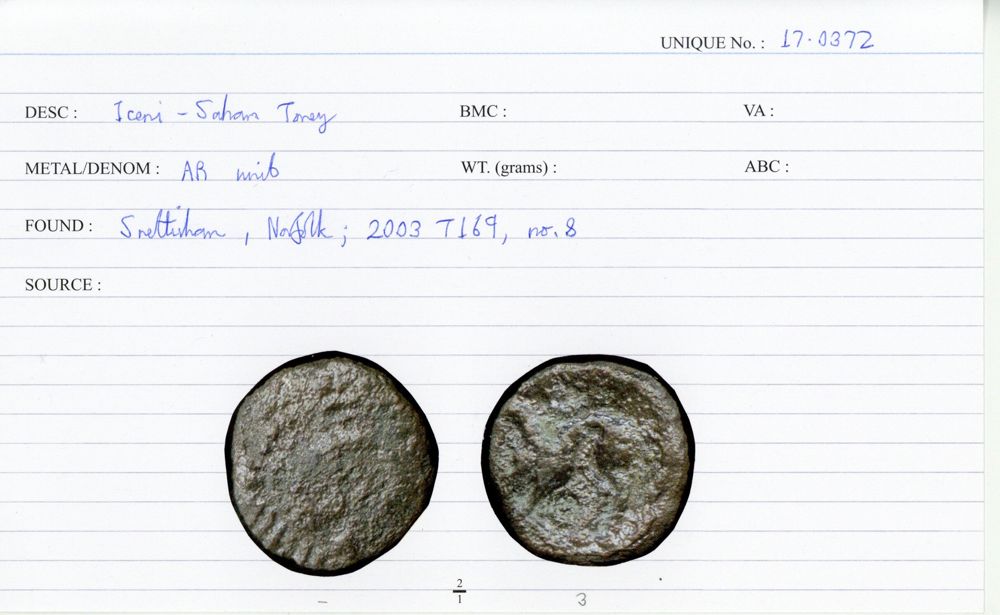 UNIQUE No. : 17.0372
DESC : Iceni - Saham Toney BMC : VA :
METAL/DENOM : AR unit WT. (grams) : ABC :
FOUND : Snettisham, Norfolk; 2003 T169, no. 8
SOURCE :
2
1
- 3